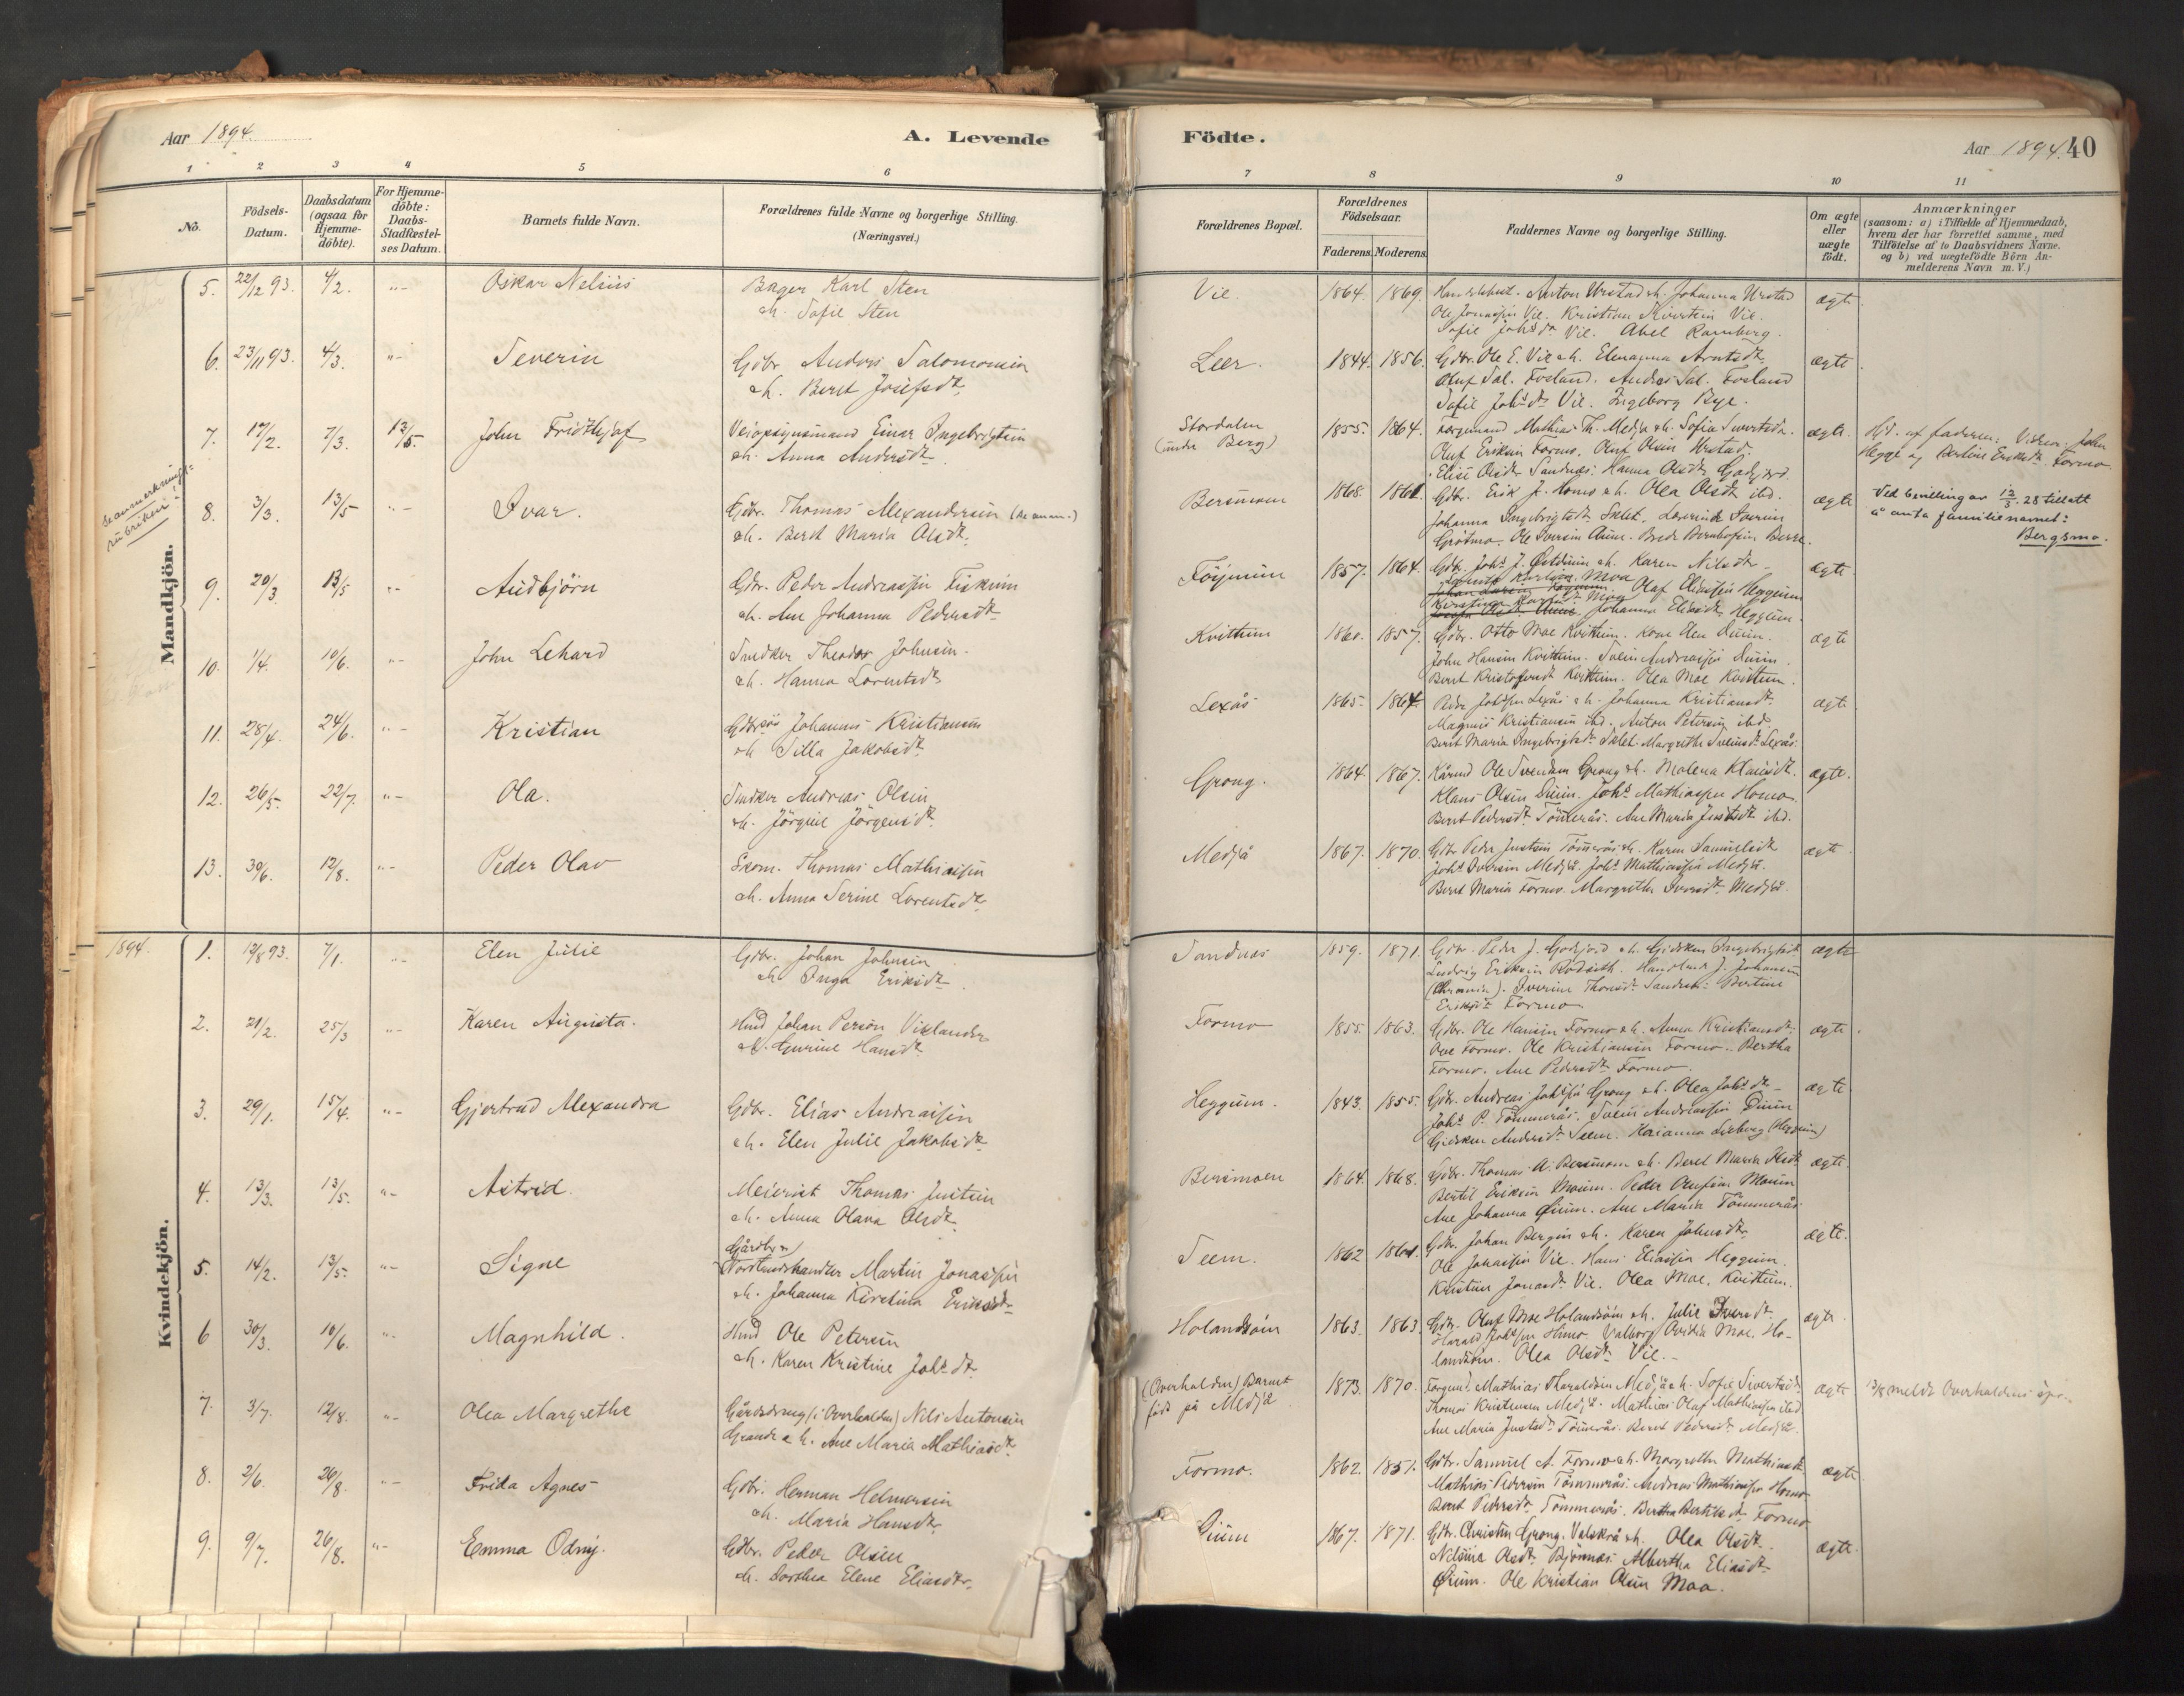 Aar 1894.
A. Levende
Födte.
Aar 1894. 40
1 2 3 4 5 6
7 8 9 10 11
No.
Födsels-Datum.
Daabsdatum (ogsaa for Hjemme-döbte).
For Hjemme-döbte: Daabs-Stadfæstel-ses Datum.
Barnets fulde Navn.
Forældrenes fulde Navne og borgerlige Stilling.
(Næringsvei.)
Forældrenes Bopæl.
Forældrenes Födselsaar.
Faderens. Moderens.
Faddernes Navne og borgerlige Stilling.
Om ægte eller uægte födt.
Anmærkninger
(saasom: a) i Tilfælde af Hjemmedaab,
hvem der har forrettet samme, med
Tilföielse af to Daabsvidners Navne.
og b) ved uægtefödte Börn An-
melderens Navn m. V.)
Mandkjön.
5. 22/12 93. 4/2. "- Oskar Nelius
Bager Karl Sten
eh. Sofie Sten
Vie. 1864. 1869. Anton Urstad eh. Johanna Urstad
Ole Jonassen Vie. Kristian Vie.
Sofie Johsdt Vie. Abel Ramberg.
ægte
6. 23/11 93. 4/3. "- Severin
Gdbr. Anders Salomonsen
eh. Beret Josefsdt.
Leer. 1844. 1856. Gdbr. Ole E. Vie eh. Elenanna Arntsdt.
Oluf Sal. Fosland. Andreas Sal. Fosland
Sofie Johsdt Vie. Ingeborg Rye.
ægte
7. 17/2. 7/3. 13/5. John Fridthjof
Veiopsynsmand Einar Ingebrigtsen
eh. Anna Andersdt.
Stordalen
(under Berg)
1855. 1864. Færgemand Mathias Th. Medjå eh. Sofie Sivertsdt.
Oluf Eriksen Formo. Oluf Olsen Urstad.
Elise Olsdt Sandnæs. Hanna Olsdt Godejord.
ægte. Hjd. af faderen: Vidner: John
Hegge og Berline Eriksdt Formo.
8. 3/3. 13/5 "- Ivar.
Gdbr. Thomas Alexandersen (se anm.)
eh. Beret Maria Olsdt.
Bersmoen 1868. 1861. Gdbr. Erik J. Homo eh. Olea Olsdt ibd.
Johanna Ingebrigtsdt Sklet. Iversen
Grötmo. Ole Iversen Duun. Berre.
ægte Ved bevilling av 12/3. 28 tillatt
å anta familienavnet:
Bergsmo.
9. 20/3. 13/5 "- Audbjörn
Gdbr. Peder Andreassen Fiskum
eh. Ane Johanna Pedersdt
Föynum 1857. 1864. Gdb. Johs J. eh. Karen Nilsdt.
Karlsen Moa
Moa Olaf Eliassen Heggum
Johanna Eliasdt. Heggum.
ægte
10. 1/4. 10/6. "- John Lehard
Snedker Theodor Johnsen
eh. Hanna Lorentsdt
Kvittum 1860. 1857. Gdbr. Otto Moe Kvittum. Kone Elen Duun.
John Hansen Kvittum. Svein Andreassen Duun.
Beret Kristofersdt Kvittum. Olea Moe Kvittum.
ægte
11. 28/4. 24/6. "- Kristian
Gdbrsøn Johannes Kristiansen
eh. Silla Jakobsdt.
Lexås 1865. 1864. Peder Johssen Lexås eh. Johanna Kristiansdt.
Magnus Kristiansen ibd. Anton Petersen ibd.
Berit Maria Ingebrigtsdt Sklet. Margrethe Sveinsdt Lexås.
ægte
12. 26/5. 22/7. "- Ola.
Snedker Andreas Olsen
eh. Jörgine Jörgensdt.
Grong. 1864. 1867. Ole Svendsen Grong eh. Malena Klausdt.
Klaus Olsen Duun. Johs Mathiassen Homo.
Beret Pedersdt. Tömmerås. Ane Maria Justsdt ibd.
ægte.
13. 30/6. 12/8. "- Peder Olav
Skom. Thomas Mathiassen
eh. Anna Serine Lorentsdt.
Medjå 1867. 1870. Gdbr. Peder Justsen Tömmerås eh. Karen Samuelsdt
Johs Iversen Medjå. Johs Mathiassen Medjå.
Beret Maria Formo. Margrethe Iversdt. Medjå.
ægte
Kvindekjön.
1894. 1. 12/8 93. 7/1. "- Elen Julie
Gdbr. Johan Johnsen
eh Inga Eriksdt.
Sandnæs 1859. 1871. Gdbr. Peder J. Godejord eh. Gidsken Ingebrigtsdt.
Ludvig Eriksen Rödseth. J. Johansen
Iverine Thomsdt. Sandnes. Bertine
Eriksdt Formo.
ægte
2. 21/2. 25/3 "- Karen Augusta.
Hmd Johan Person Vislander
eh. Gurine Hansdt.
Formo 1855. 1863. Gdbr. Ole Hansen Formo eh. Anna Kristiansdt.
Ove Formo. Ole Kristiansen Formo. Bertha
Formo. Ane Pedersdt Formo.
ægte.
3. 29/1. 15/4. "- Gjertrud Alexandra
Gdbr. Elias Andreassen
eh. Elen Julie Jakobsdt.
Heggum. 1843. 1855. Gdbr. Andreas Johssen Grong eh. Olea Johsdt
Johs P. Tömmerås. Svein Andreassen Duun
Gidsken Andersdt Seem. Marianna Sieberg (Heggum)
ægte
4. 13/3. 13/5. "- Astrid.
Meierist Thomas Justsen
eh. Anna Olava Olsdt.
Bersmoen 1864. 1868. Gdbr. Thomas A. Bersmoen eh. Beret Maria Olsdt
Bertil Eriksen Moum. Peder Olufsen Moum
Ane Johanna Duum. Ane Maria Tömmerås.
ægte
5. 14/2. 13/5. "- Signe
Gårdbr. og
Martin Jonassen
eh. Johanna Kirstina Eriksdt.
Seem. 1862 1861. Gdbr. Johan Bergsen eh. Karen Johnsdt.
Ole Johnassen Vie. Hans Eliassen Heggum
Kristine Jonasdt. Vie. Olea Moe, Kvittum.
ægte.
6 30/3. 10/6. "- Magnhild.
Hmd Ole Petersen
eh. Karen Kristine Johsdt.
Holandsöm 1863. 1863. Gdbr. Oluf Moe Holandsöm eh. Julie Iversdt
Harald Johssen Homo. Valborg Ovidia Moe. Ho-
landsöm. Olea Olsdt. Vie.
ægte.
7. 3/7. 12/8. "- Olea Margrethe
Gårdsdreng (i Overhalden) Nils Antonsen
Grande eh. Ane Maria Mathiasdt
(Overhalden) Barnet
födt på Medjå
1873. 1870. Mathias Tharaldsen Medjå eh. Sofie Sivertsdt.
Thomas Kristensen Medjå. Mathias Olaf Mathiassen ibd
Ane Maria Justsdt Tömmerås. Beret Pedersdt Medjå.
ægte 13/8 meldt Overhaldens spr.
8. 2/6. 26/8. "- Frida Agnes
Gdbr. Herman Helmersen
eh. Maria Hansdt.
Formo. 1862. 1851. Gdbr. Samuel A. Formo eh. Margrethe Mathiasdt
Mathias Pedersen Tömmerås. Andreas Mathiassen Homo
Beret Pedersdt. Tömmerås. Bertha Bertilsdt Formo
ægte
9. 9/7. 26/8. "- Emma Odny.
Gdbr. Peder Olsen
eh. Dorthea Elene Eliasdtr.
Duum 1867. 1871. Gdbr. Christen Grong. Valskrå eh. Olea Olsdt.
Nilsine Olsdt. Bjömnæs. Albertha Eliasdt
Duum. Ole Kristian Olsen Moa.
ægte.